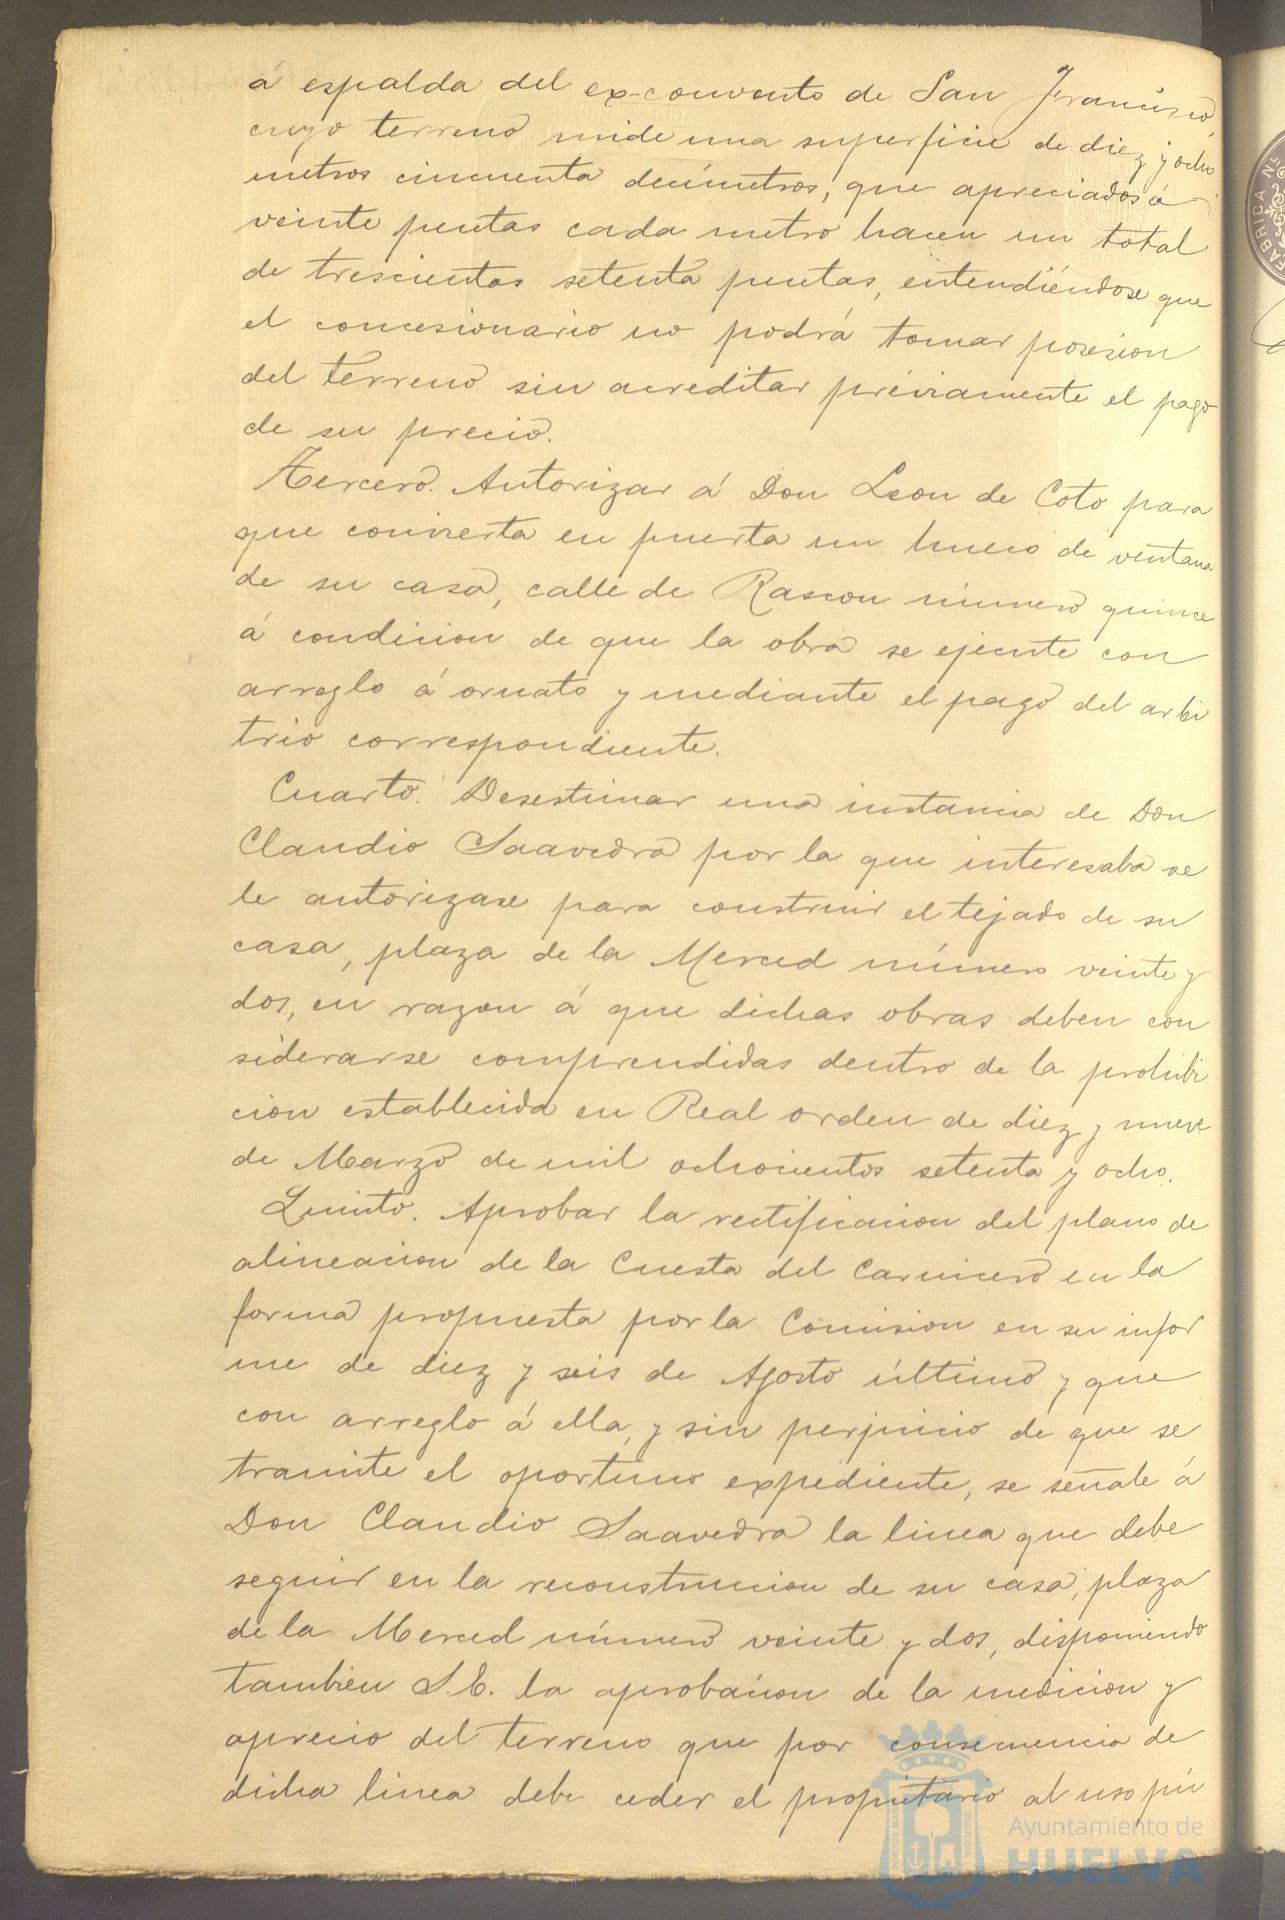 á espalda del ex-convento de San Francisco,
cuyo terreno mide una superficie de diez y ocho
metros cincuenta decímetros, que apreciados á
veinte pesetas cada metro hacen un total
de trescientas setenta pesetas, entendiéndose que
el concesionario no podrá tomar posesion
del terreno sin acreditar préviamente el pago
de su precio.
Tercero. Autorizar á Don Leon de Coto para
que convierta en puerta un hueco de ventana
de su casa, calle de Rascon número quince
á condicion de que la obra se ejecute con
arreglo á ornato y mediante el pago del arbi
trio correspondiente.
Cuarto. Desestimar una instancia de Don
Claudio Saavedra por la que interesaba se
le autorizase para construir el tejado de su
casa, plaza de la Merced número veinte y
dos, en razon á que dichas obras deben con
siderarse comprendidas dentro de la prohibi
cion establecida en Real orden de diez y nueve
de Marzo de mil ochocientos setenta y ocho.
Quinto. Aprobar la rectificacion del plano de
alineacion de la Cuesta del Carnicero en la
forma propuesta por la Comision en su infor
me de diez y seis de Agosto último y que
con arreglo á ella, y sin perjuicio de que se
tramite el oportuno expediente, se señale á
Don Claudio Saavedra la linea que debe
seguir en la reconstruccion de su casa, plaza
de la Merced número veinte y dos, disponiendo
tambien S.E. la aprobacion de la medicion y
aprecio del terreno que por consecuencia de
dicha linea debe ceder el propietario al uso pú
Ayuntamiento de
HUELVA